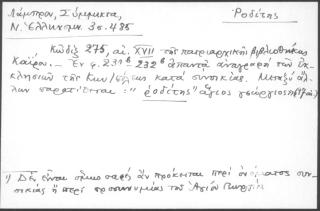 Λάμπρου, Σύμμικτα, Ροδίτης
Ν. Ἑλληνομν. 3ος 485
Κῶδιξ 275, αἰ. XVII τῆς πατριαρχικῆς βιβλιοθήκης
Καΐρου. — Ἐν φ. 231β - 232β ἀπαντᾷ ἀναγραφὴ τῶν ἐκ-
κλησιῶν τῆς Κων/πόλεως κατὰ συνοικίας. Μεταξὺ ἄλ-
λων παρατίθεται: "ῥοδίτης" ἅγιος γεώργιος
1) Δὲν εἶναι σαφὲς ἂν πρόκειται περὶ ὀνόματος συν-
οικίας ἢ περὶ προσωνυμίας τοῦ Ἁγίου Γεωργίου